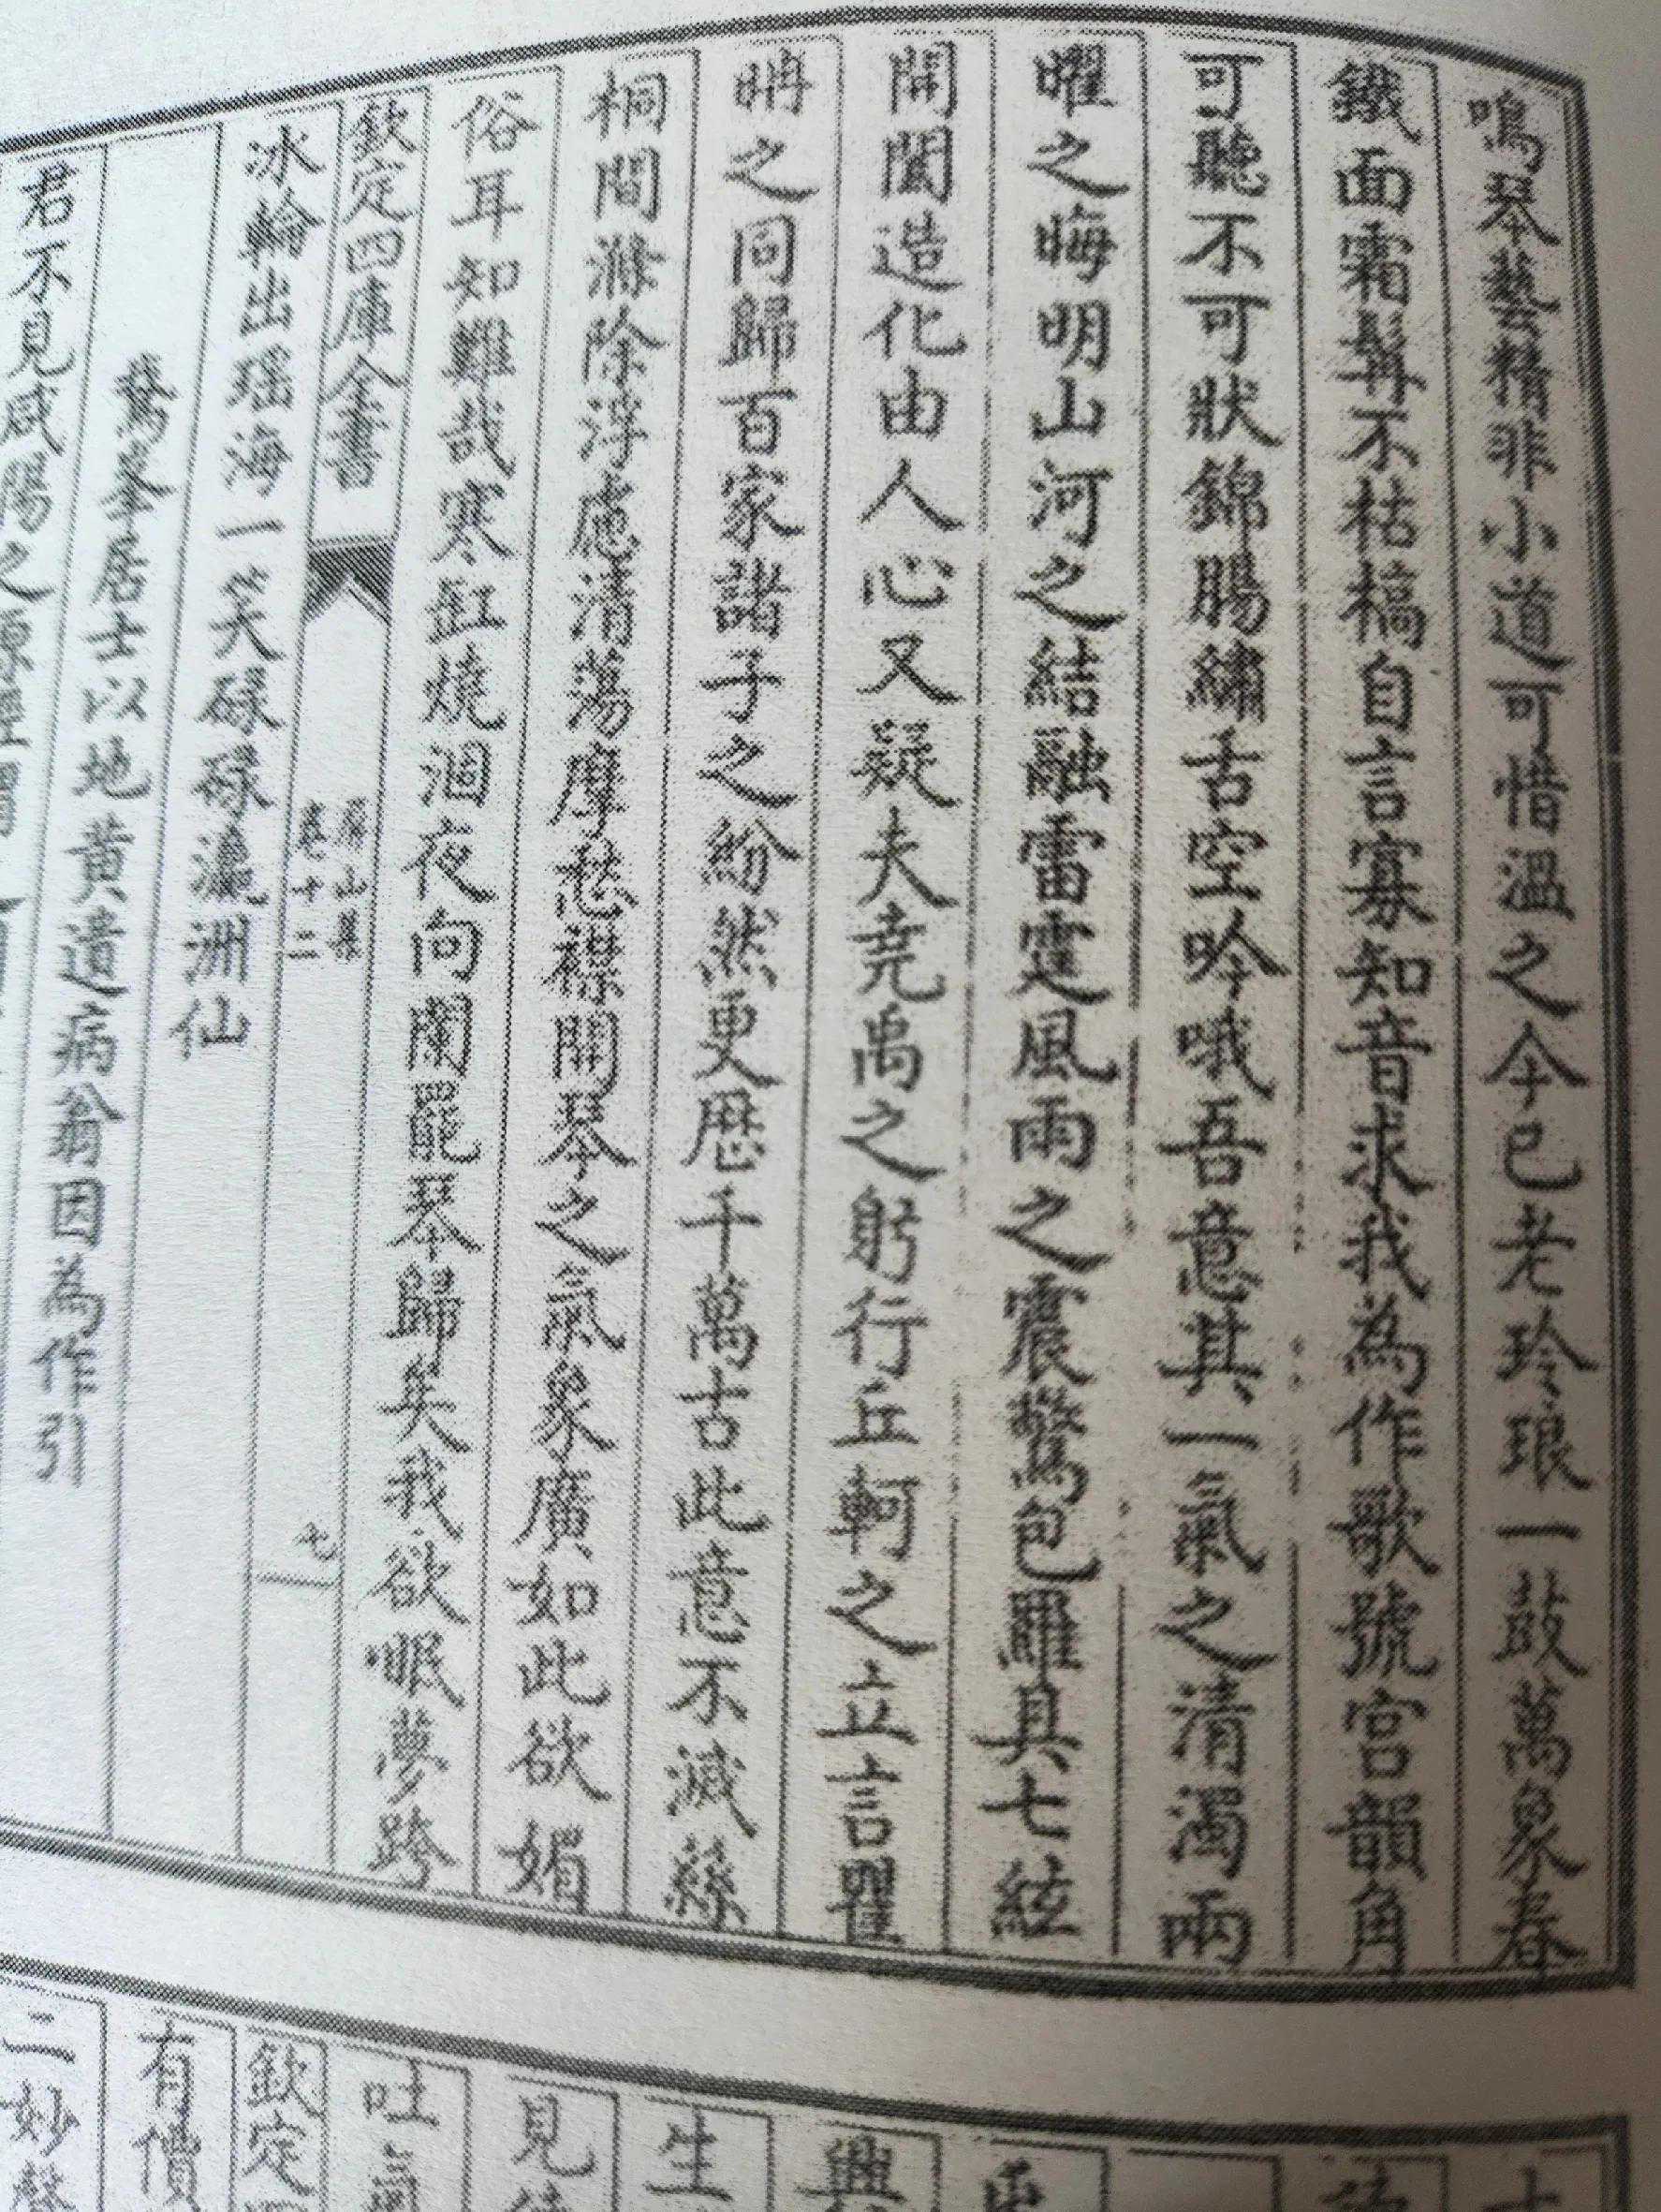 鳴琴藝精非小道可惜溫之今已老玲琅一鼓萬象春
鐵面霜髯不枯槁自言寡知音求我為作歌號宮韻角
可聽不可狀錦腸繡舌空吟哦吾意其一氣之清濁兩
曜之晦明山河之結融雷霆風雨之震驚包羅具七絃
開闔造化由人心又疑夫堯禹之躬行丘軻之立言瞿
聃之同歸百家諸子之紛然更歷千萬古此意不滅絲
桐間滌除浮慮清蕩摩愁襟開琴之氣象廣如此欲媚
俗耳知難哉寒缸燒涸夜向闌罷琴歸矣我欲眠夢跨
欽定四庫全書
屏山集
卷十二
七
冰輪出瑶海一笑碌碌瀛洲仙
鶩峯居士以地黄遺病翁因為作引
君不見咸陽之
吐氣
欽定
有償
二妙